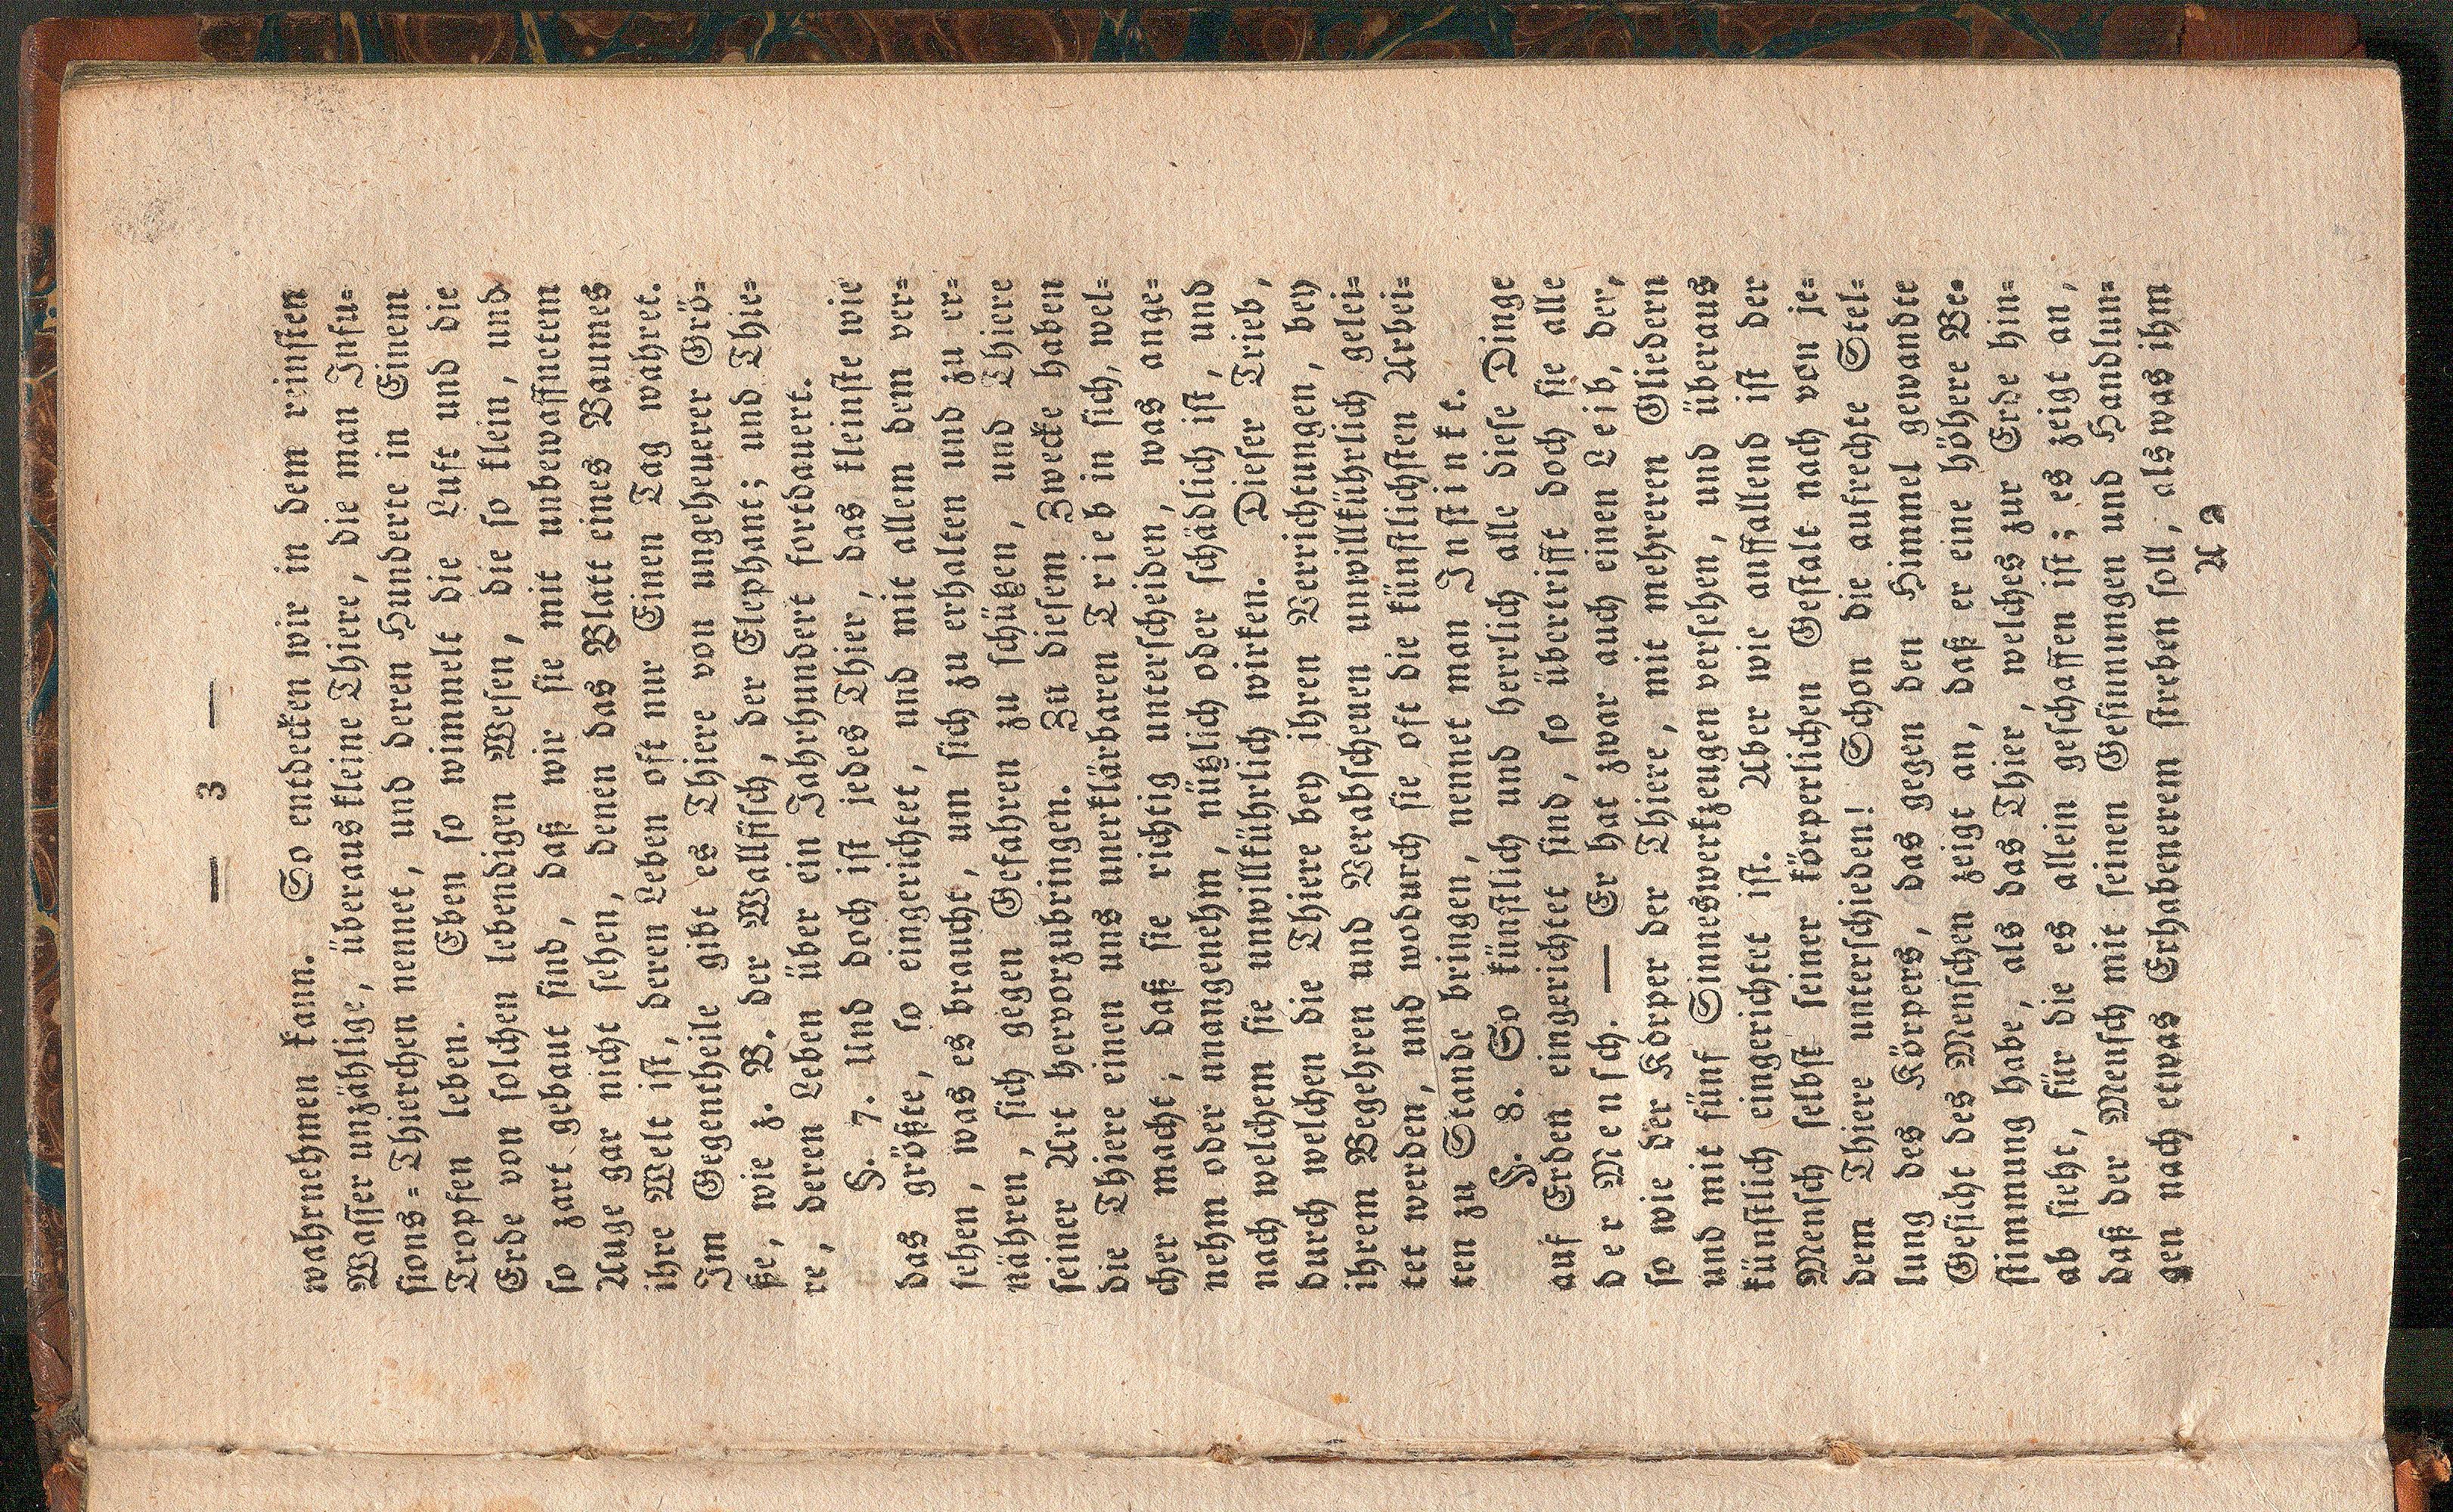 — 3 —
wahrnehmen kann. So entdecken wir in dem reinsten
Wasser unzählige, überaus kleine Thiere, die man Infu=
sions=Thierchen nennet, und deren Hunderte in Einem
Tropfen leben. Eben so wimmelt die Luft und die
Erde von solchen lebendigen Wesen, die so klein, und
so zart gebaut sind, daß wir sie mit unbewaffnetem
Auge gar nicht sehen, denen das Blatt eines Baumes
ihre Welt ist, deren Leben oft nur Einen Tag währet.
Im Gegentheile gibt es Thiere von ungeheuerer Grö=
ße, wie z. B. der Wallfisch, der Elephant; und Thie=
re, deren Leben über ein Jahrhundert fortdauert.
§. 7. Und doch ist jedes Thier, das kleinste wie
das größte, so eingerichtet, und mit allem dem ver=
sehen, was es braucht, um sich zu erhalten und zu er=
nähren, sich gegen Gefahren zu schützen, und Thiere
seiner Art hervorzubringen. Zu diesem Zwecke haben
die Thiere einen uns unerklärbaren Trieb in sich, wel=
cher macht, daß sie richtig unterscheiden, was ange=
nehm oder unangenehm, nützlich oder schädlich ist, und
nach welchem sie unwillkührlich wirken. Dieser Trieb,
durch welchen die Thiere bey ihren Verrichtungen, bey
ihrem Begehren und Verabscheuen unwillkührlich gelei=
tet werden, und wodurch sie oft die künstlichsten Arbei=
ten zu Stande bringen, nennet man Instinkt.
§. 8. So künstlich und herrlich alle diese Dinge
auf Erden eingerichtet sind, so übertrifft doch sie alle
der Mensch. — Er hat zwar auch einen Leib, der,
so wie der Körper der Thiere, mit mehreren Gliedern
und mit fünf Sinneswerkzeugen versehen, und überaus
künstlich eingerichtet ist. Aber wie auffallend ist der
Mensch selbst seiner körperlichen Gestalt nach von je=
dem Thiere unterschieden! Schon die aufrechte Stel=
lung des Körpers, das gegen den Himmel gewandte
Gesicht des Menschen zeigt an, daß er eine höhere Be=
stimmung habe, als das Thier, welches zur Erde hin=
ab sieht, für die es allein geschaffen ist; es zeigt an,
daß der Mensch mit seinen Gesinnungen und Handlun=
gen nach etwas Erhabenerem streben soll, als was ihm
A 2